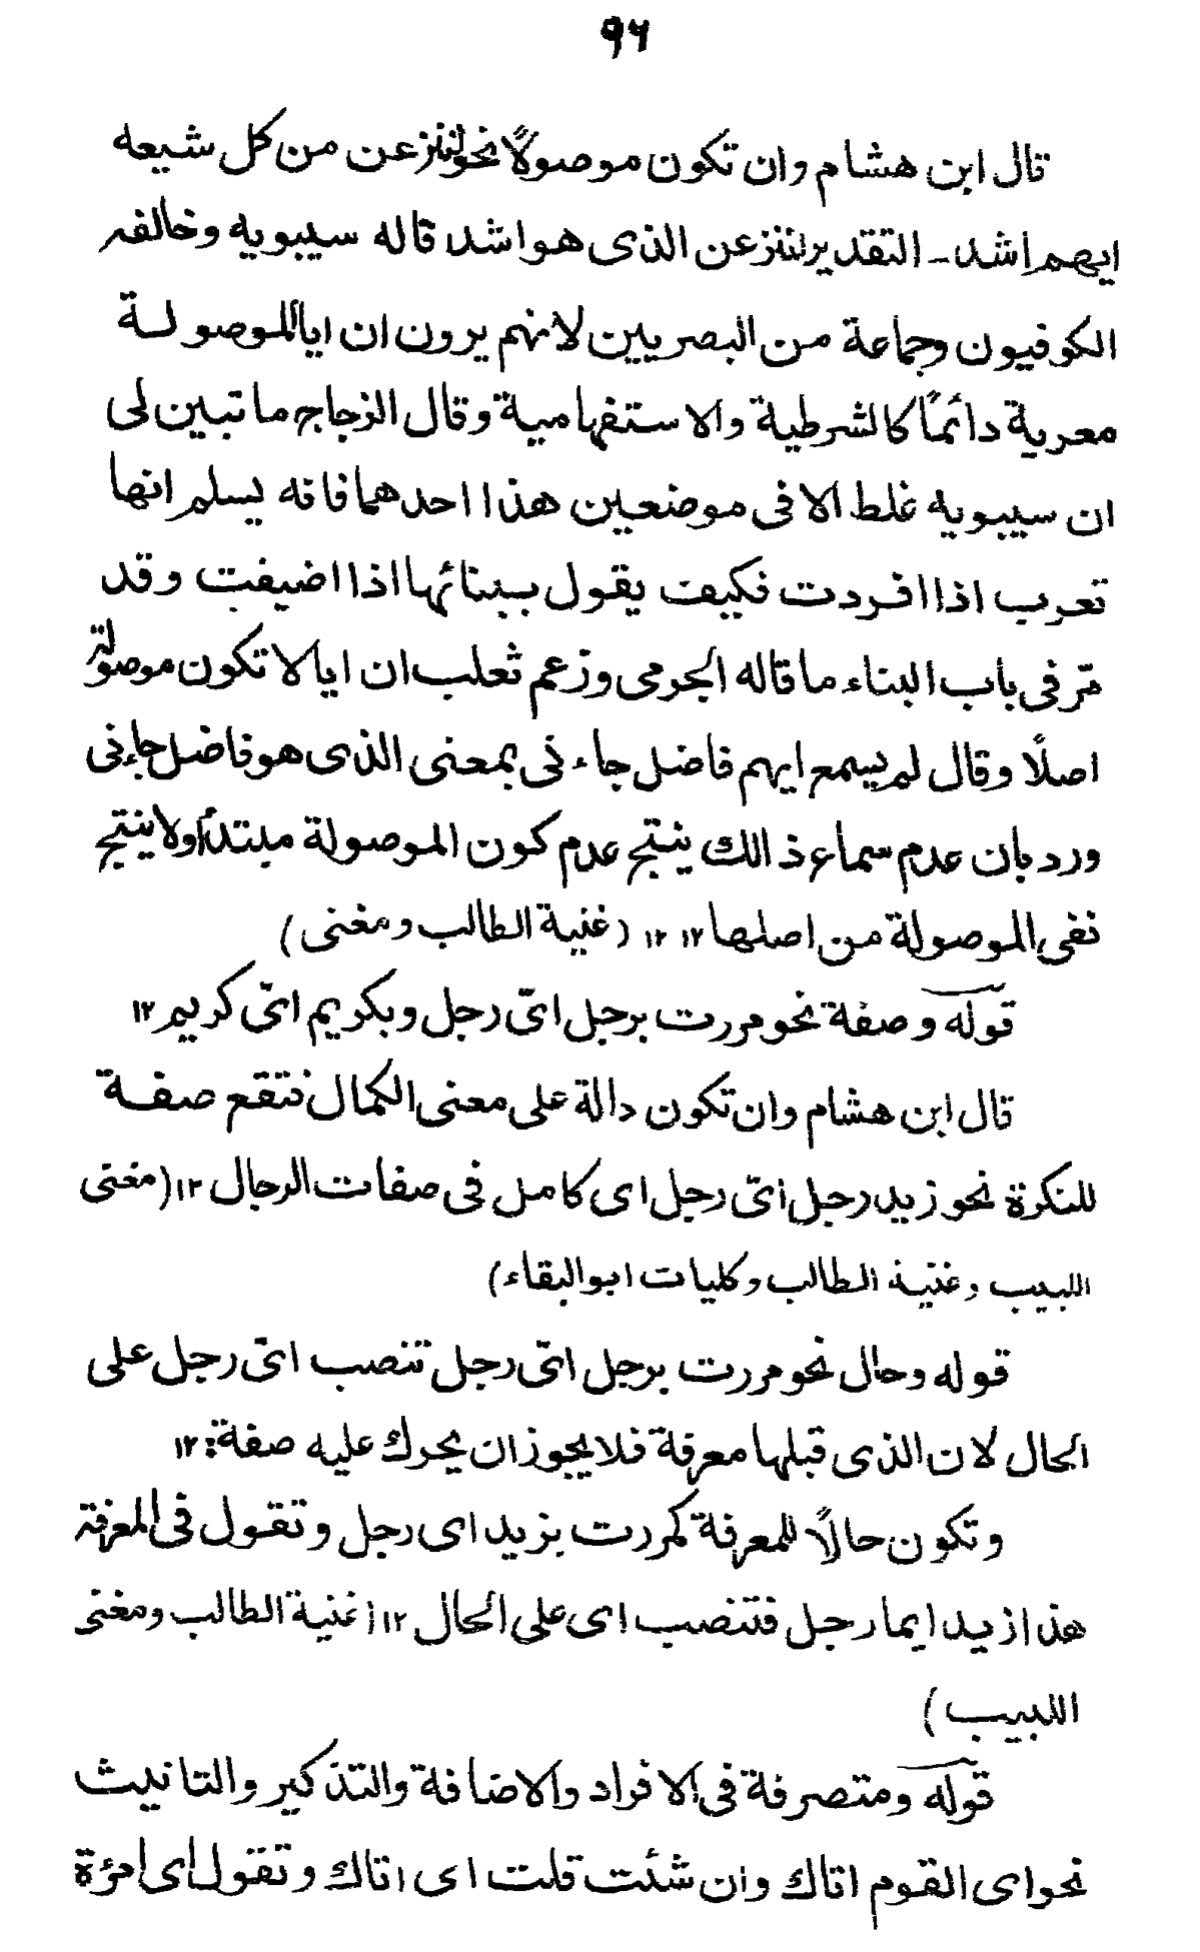 ٩٦
قال ابن هشام وان تكون موصولاً نحو لننزعن من كل شيعه
ايهم اشد ـ التقدير لننزعن الذى هو اشد قاله سيبويه وخالفه
الكوفيون وجماعة من البصريين لانهم يرون ان ايا الموصولة
معربة دائمًا كالشرطية والاستفهامية وقال الزجاج ما تبين لى
ان سيبويه غلط الا فى موضعين هذا احدهما فانه يسلم انها
تعرب اذا افردت فكيف يقول ببنائها اذا اضيفت وقد
مّر فى باب البناء ما قاله الجرمى وزعم ثعلب ان ايا لا تكون موصولة
اصلًا وقال لم يسمع ايهم فاضل جاء نى بمعنى الذى هو فاضل جاءنى
ورد بان عدم سماع ذالك ينتج عدم كون الموصولة مبتدأ ولا ينتج
نفى الموصولة من اصلها ١٢ ١٢ ١٢ (غنية الطالب ومغنى)
قوله وصفة نحو مررت برجل اىّ رجل وبكريم اىّ كريم ١٢
قال ابن هشام وان تكون دالة على معنى الكمال فتقع صفة
للنكرة نحو زيد رجل اىّ رجل اى كامل فى صفات الرجال ١٢ (مغنى
اللبيب وغنية الطالب وكليات ابو البقاء)
قوله وحال نحو مررت برجل اىّ رجل تنصب اىّ رجل على
الحال لان الذى قبلها معرفة فلا يجوز ان يحرك عليه صفة: ١٢
وتكون حالًا للمعرفة كمررت بزيد اى رجل وتقول فى المعرفة
هذا زيد ايما رجل فتنصب اى على الحال ١٢ (غنية الطالب ومغنى
اللبيب)
قوله ومتصرفة فى الافراد والاضافة والتذكير والتانيث
نحو اى القوم اتاك وان شئت قلت اى اتاك وتقول اى امرٔة